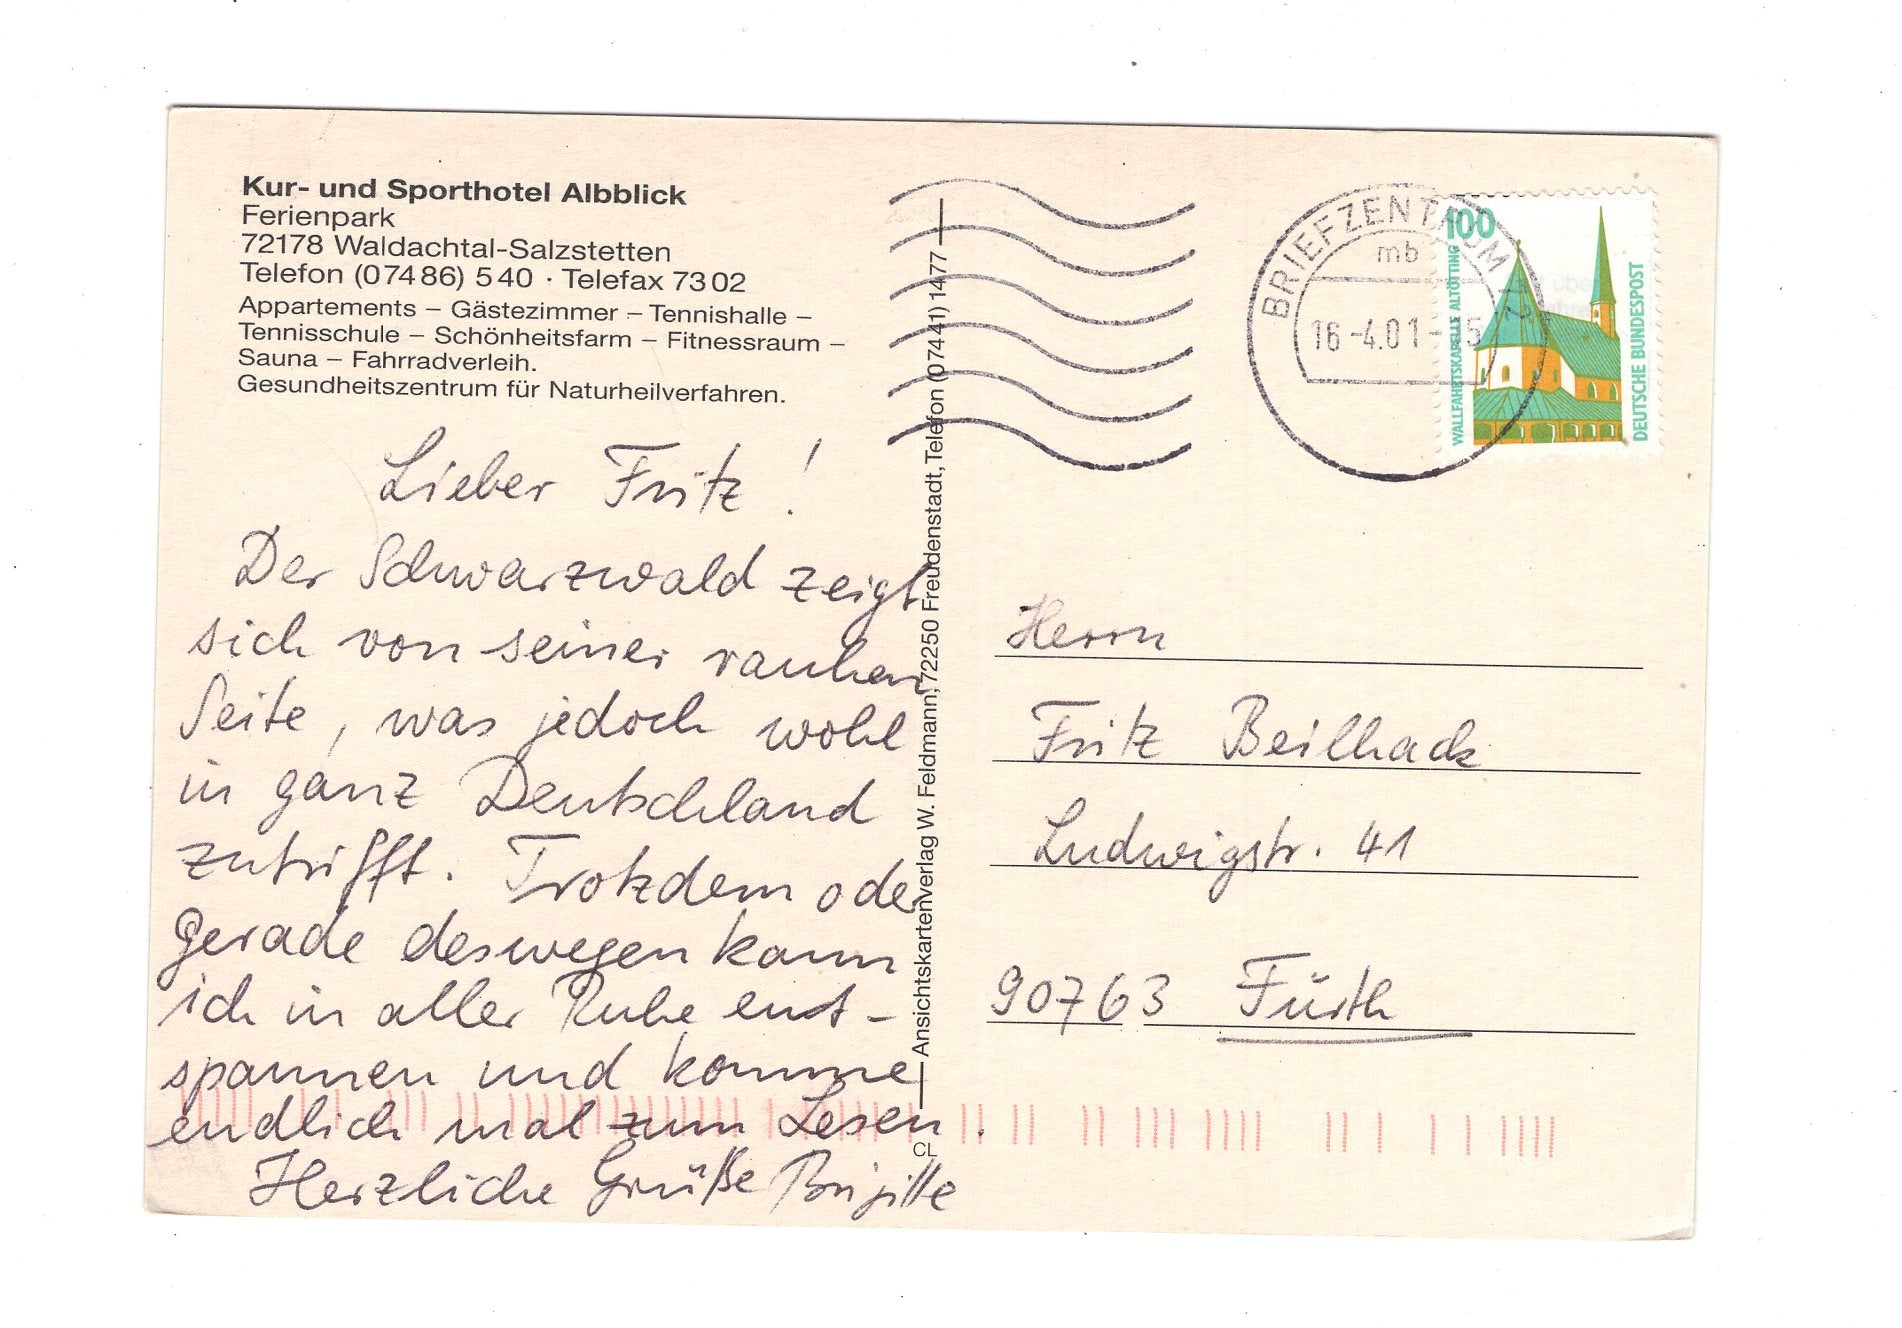 Kur- und Sporthotel Albblick
Ferienpark
72178 Waldachtal-Salzstetten
Telefon (07486) 540 · Telefax 7302
Appartements – Gästezimmer – Tennishalle –
Tennisschule – Schönheitsfarm – Fitnessraum –
Sauna – Fahrradverleih.
Gesundheitszentrum für Naturheilverfahren.
Lieber Fritz!
Der Schwarzwald zeigt
sich von seiner rauhen
Seite, was jedoch wohl
in ganz Deutschland
zutrifft. Trotzdem oder
gerade deswegen kann
ich in aller Ruhe ent-
spannen und komme
endlich mal zum Lesen.
Herzliche Grüße Brigitte
Ansichtskartenverlag W. Feldmann, 72250 Freudenstadt, Telefon (07441) 1477
CL
BRIEFZENTRUM 72
mb
16-4.01-15
100
WALLFAHRTSKAPELLE ALTÖTTING
DEUTSCHE BUNDESPOST
Herrn
Fritz Beilhack
Ludwigstr. 41
90763 Fürth